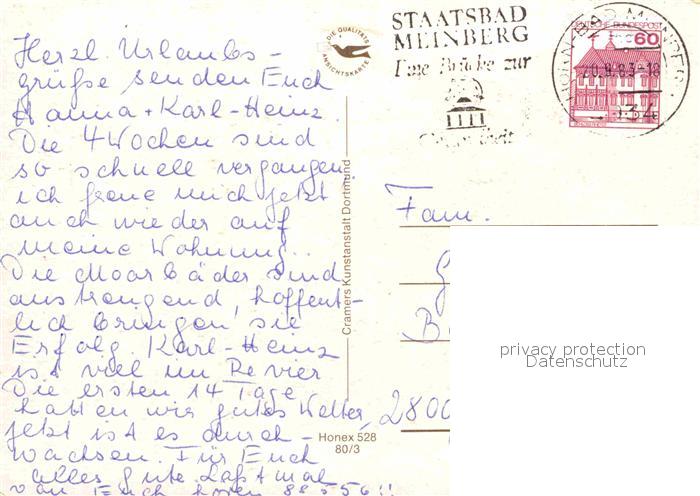 Herzl. Urlaubs-
grüße senden Euch
Hanna + Karl-Heinz.
Die 4 Wochen sind
so schnell vergangen.
ich freue mich jetzt
auch wieder auf
meine Wohnung..
Die Moorbäder sind
anstrengend, hoffent-
lich bringen sie
Erfolg. Karl-Heinz
ist viel im Revier
Die ersten 14 Tage
hatten wir gutes Wetter,
jetzt ist es durch-
wachsen. Für Euch
alles gute Laßt mal
von Euch hören 88556!!
DIE QUALITÄTS
ANSICHTSKARTE
Cramers Kunstanstalt Dortmund
Honex 528
80/3
STAATSBAD
MEINBERG
Eine Brücke zur
DEUTSCHE BUNDESPOST
60
20.9.83-18
Fam.
G
B
2800
privacy protection
Datenschutz